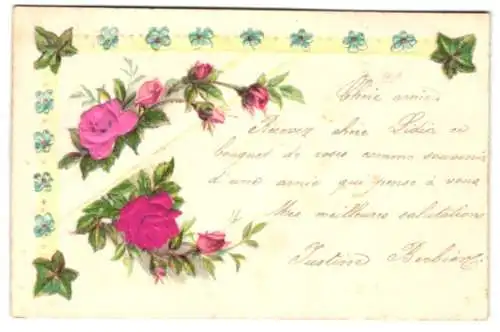 Chère amie.
Recevez chère Lidia ce
bouquet de roses comme souvenir
d'une amie que pense à vous
Mes meilleures salutations
Justine